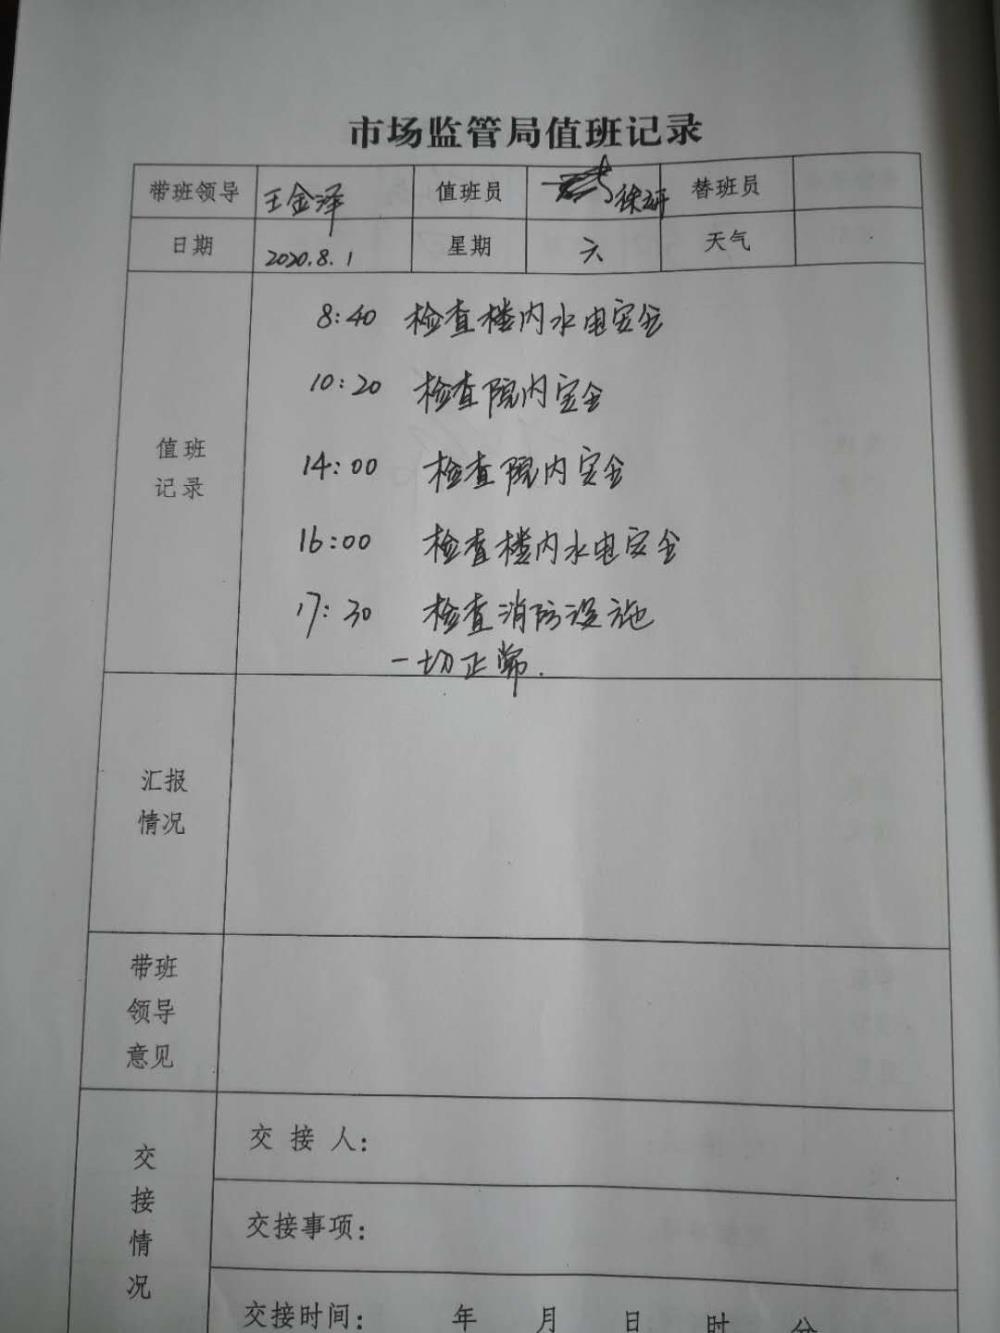 市场监管局值班记录
带班领导 王金泽 值班员 替班员
日期 2020.8.1 星期 六 天气
8:40 检查楼内水电安全
10:20 检查院内安全
值班
记录
14:00 检查院内安全
16:00 检查楼内水电安全
17:30 检查消防设施
一切正常.
汇报
情况
带班
领导
意见
交接情况
交接人:
交接事项:
交接时间: 年 月 日 时 分